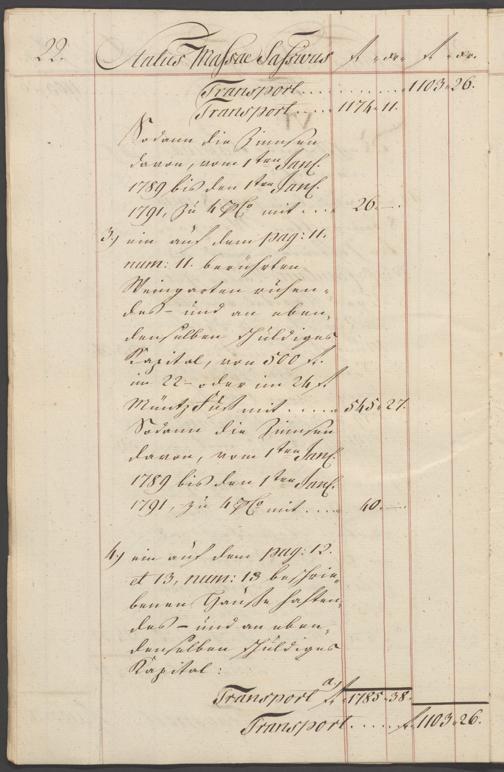 22. Status Massae Passivus ft xr ft xr
Transport 1103. 26.
Transport 1174. 11.
Sodann die Zinnsen
davon, vom 1ten Jan.
1789 bis den 1ten Jan.
1791, zu 4 pCo mit 26. —
3.) ein auf dem pag: 11.
num: 11. berührten
Weingarten ruhen-
des- und an eben-
denselben schuldiges
Kapital, von 500 ft.
im 22- oder im 24 ft
Müntz Fuß mit 545. 27.
Sodann die Zinnsen
davon, vom 1ten Jan.
1789 bis den 1ten Jan.
1791, zu 4 pCo mit 40. —
4.) ein auf dem pag: 12.
et 13, num: 13 beschrie-
benen Hauße haften-
des- und an eben-
denselben schuldiges
Kapital:
Transport ft. 1785. 38.
Transport ft. 1103. 26.